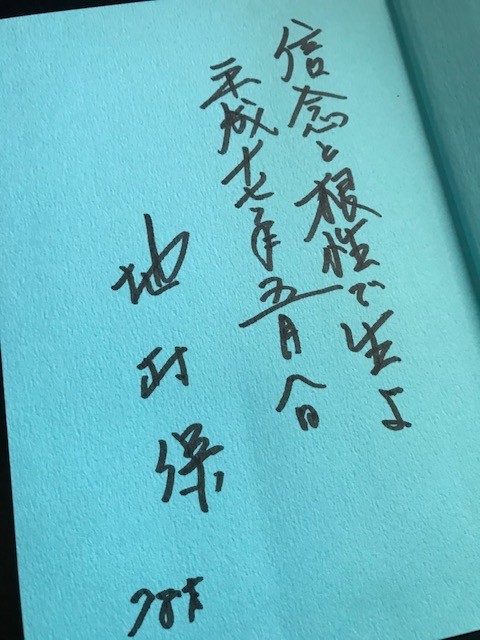 信念と根性で生よ
平成十七年五月八日
地村保
78才